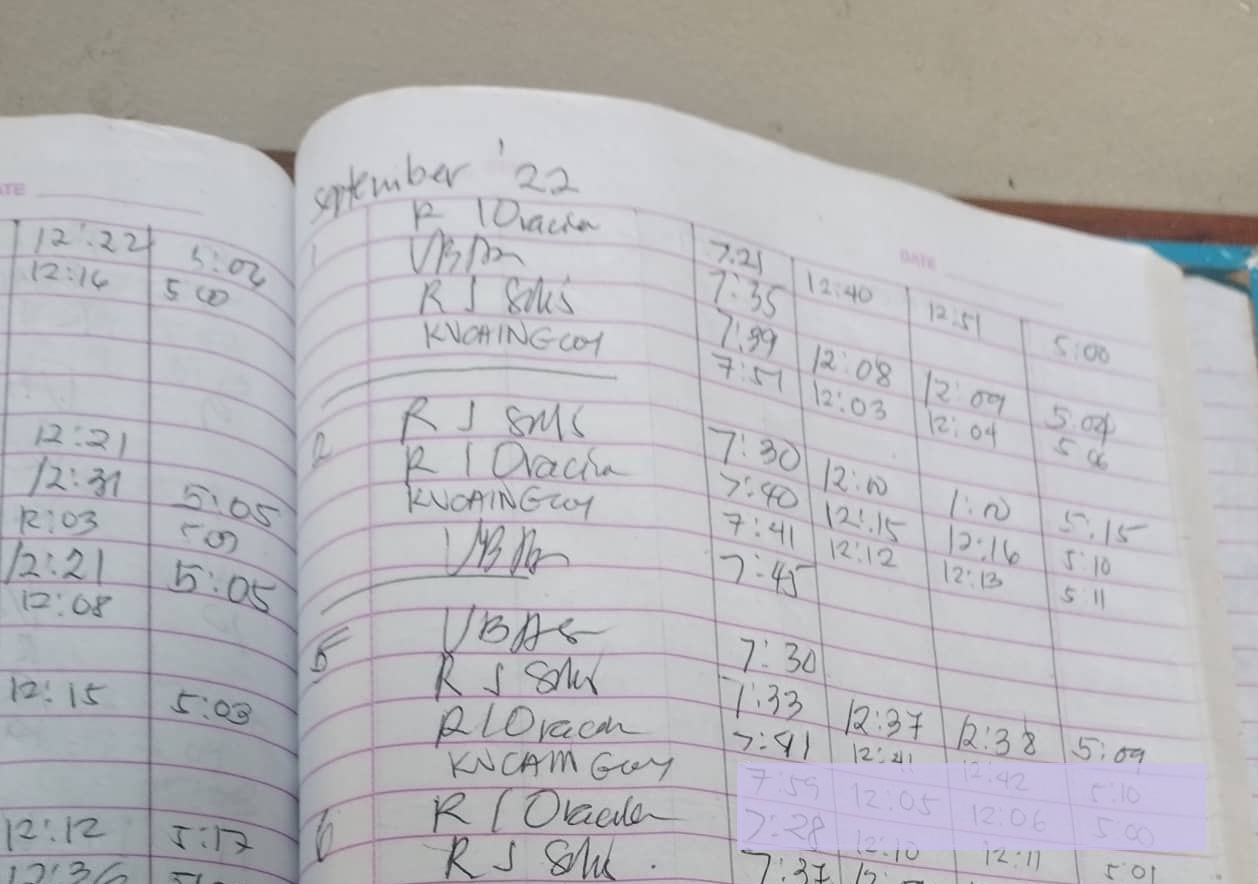 DATE
12:22 5:02
12:14 5 00
12:21
12:31 5:05
12:03 5 09
12:21 5:05
12:08
12:15 5:03
12:12 5:17
12:36
September '22
DATE
1 R I Oracion 7:21 12:40 12:51 5:00
VBA 7:35
R J Solis 7:39 12:08 12:09 5:04
KVCAINGCOY 7:51 12:03 12:04 5 06
2 R J Solis 7:30 12:10 1:10 5:15
R I Oracion 7:40 12:15 12:16 5:10
KVCAINGCOY 7:41 12:12 12:13 5 11
VBA 7:45
5 VBA 7:30
R J Solis 7:33 12:37 12:38 5:09
R I Oracion 7:41 12:41 12:42 5:10
KVCAINGCOY 7:59 12:05 12:06 5:00
6 R I Oracion 7:28 12:10 12:11 5:01
R J Solis 7:37